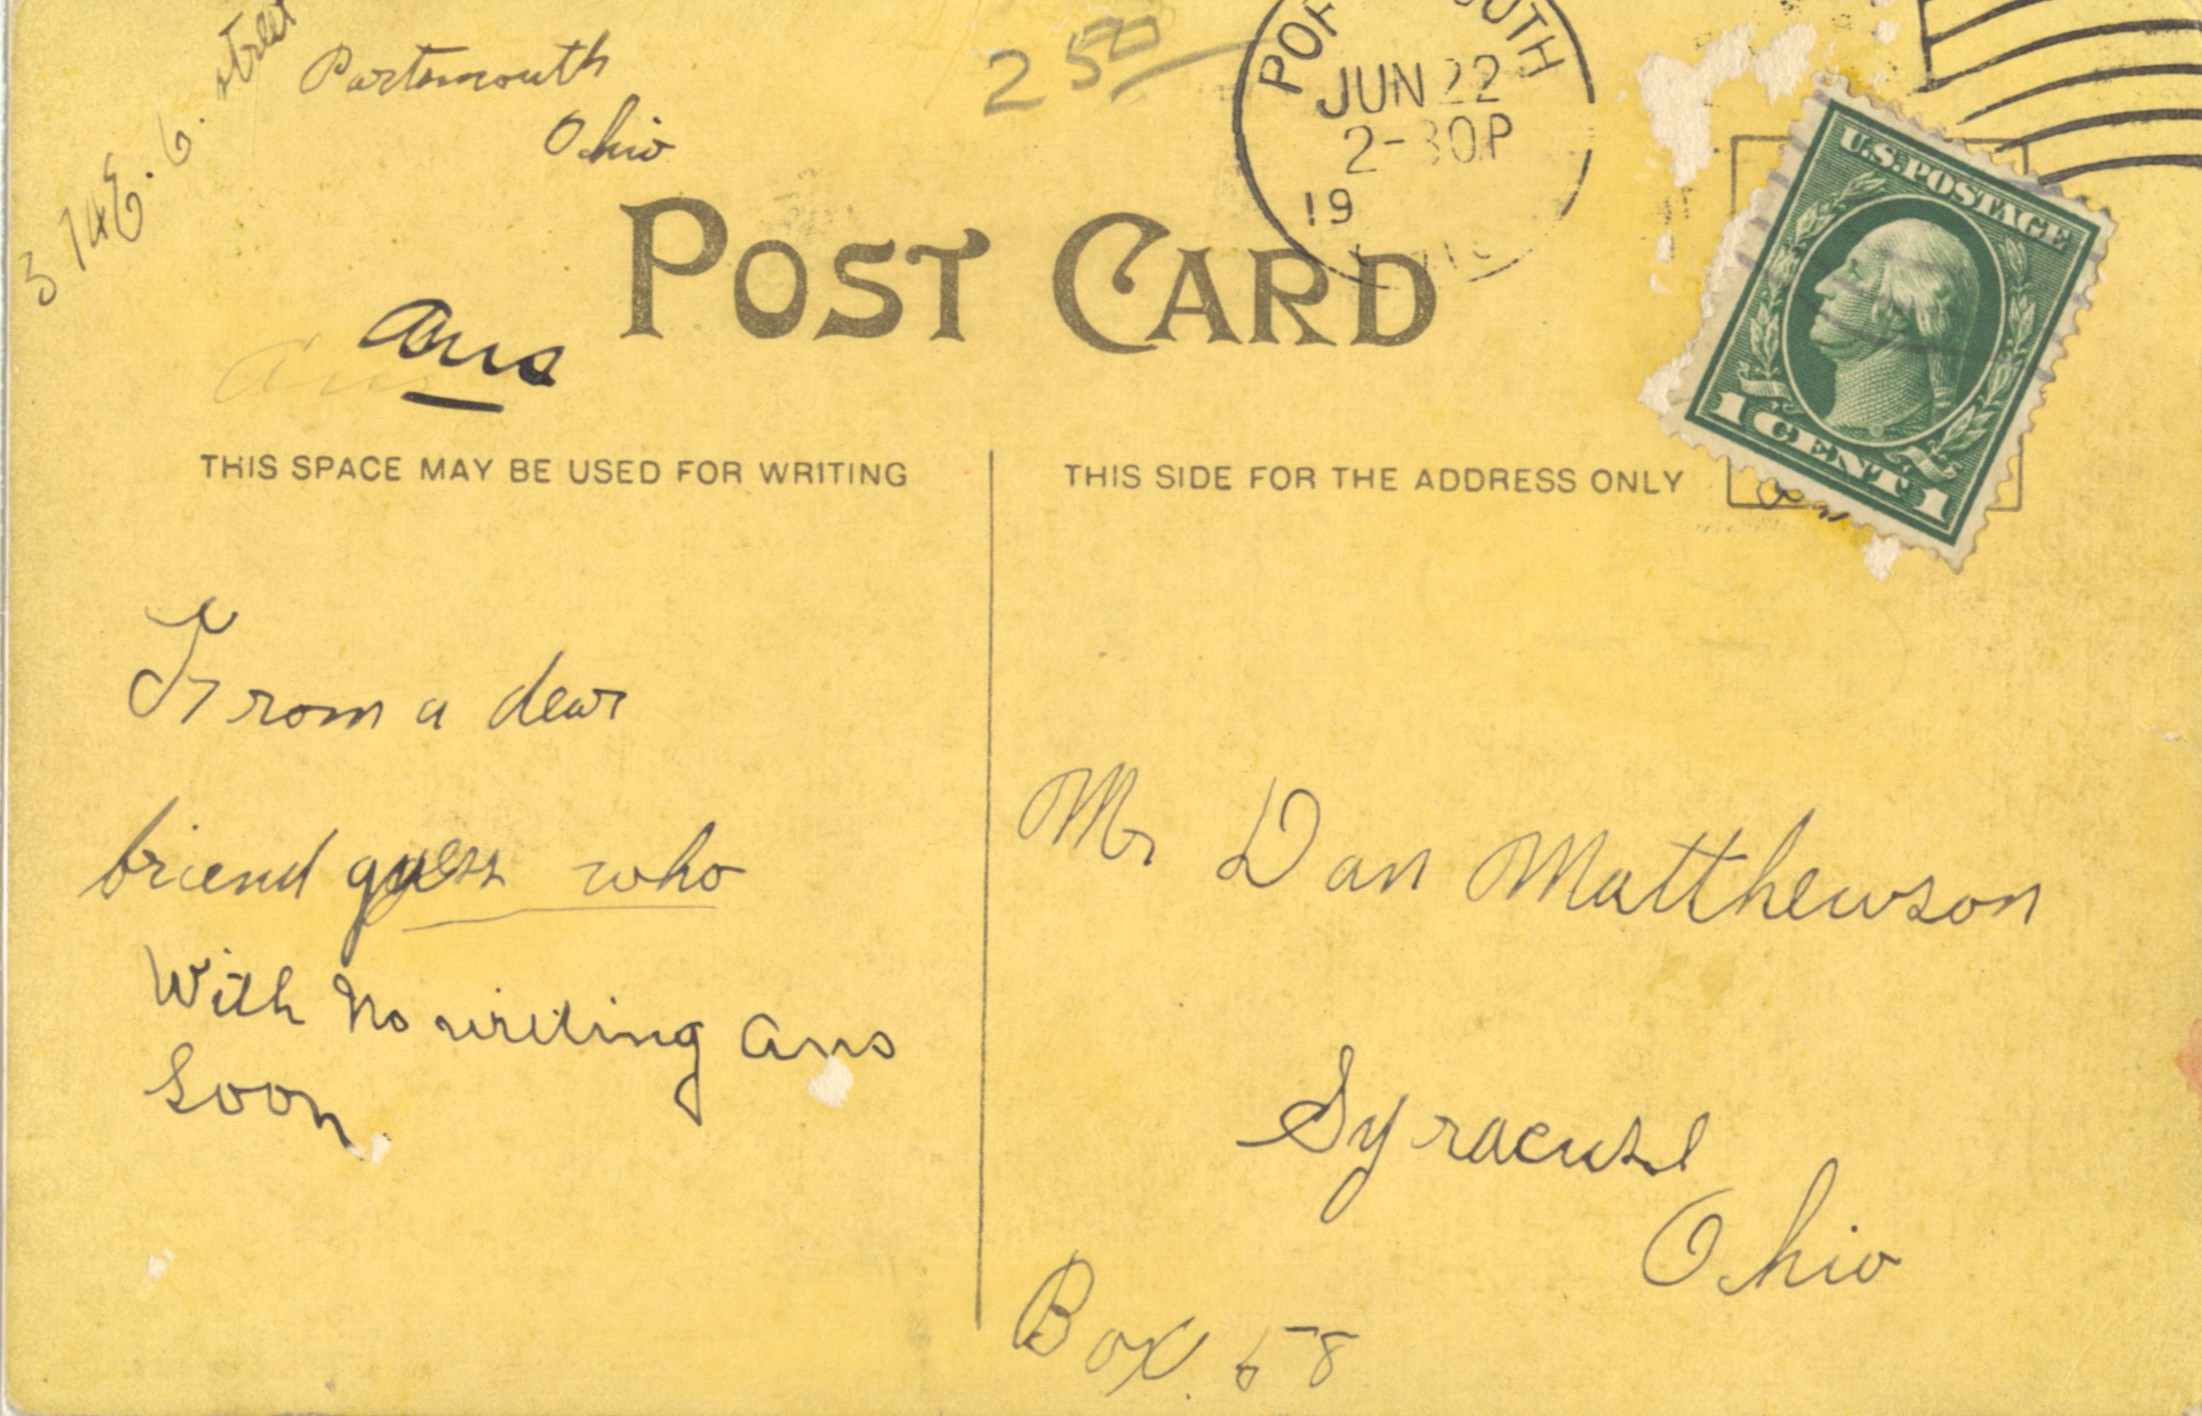 314 E. 6. street
Partsmouth
Ohio
2 50
JUN 22
2-30P
19
U.S.POSTAGE
1 CENT 1
POST CARD
ans
ans
THIS SPACE MAY BE USED FOR WRITING
THIS SIDE FOR THE ADDRESS ONLY
From a dear
friend guess who
With No writing ans
Soon.
Mr Dan Matthewson
Syracuse
Ohio
Box. 58